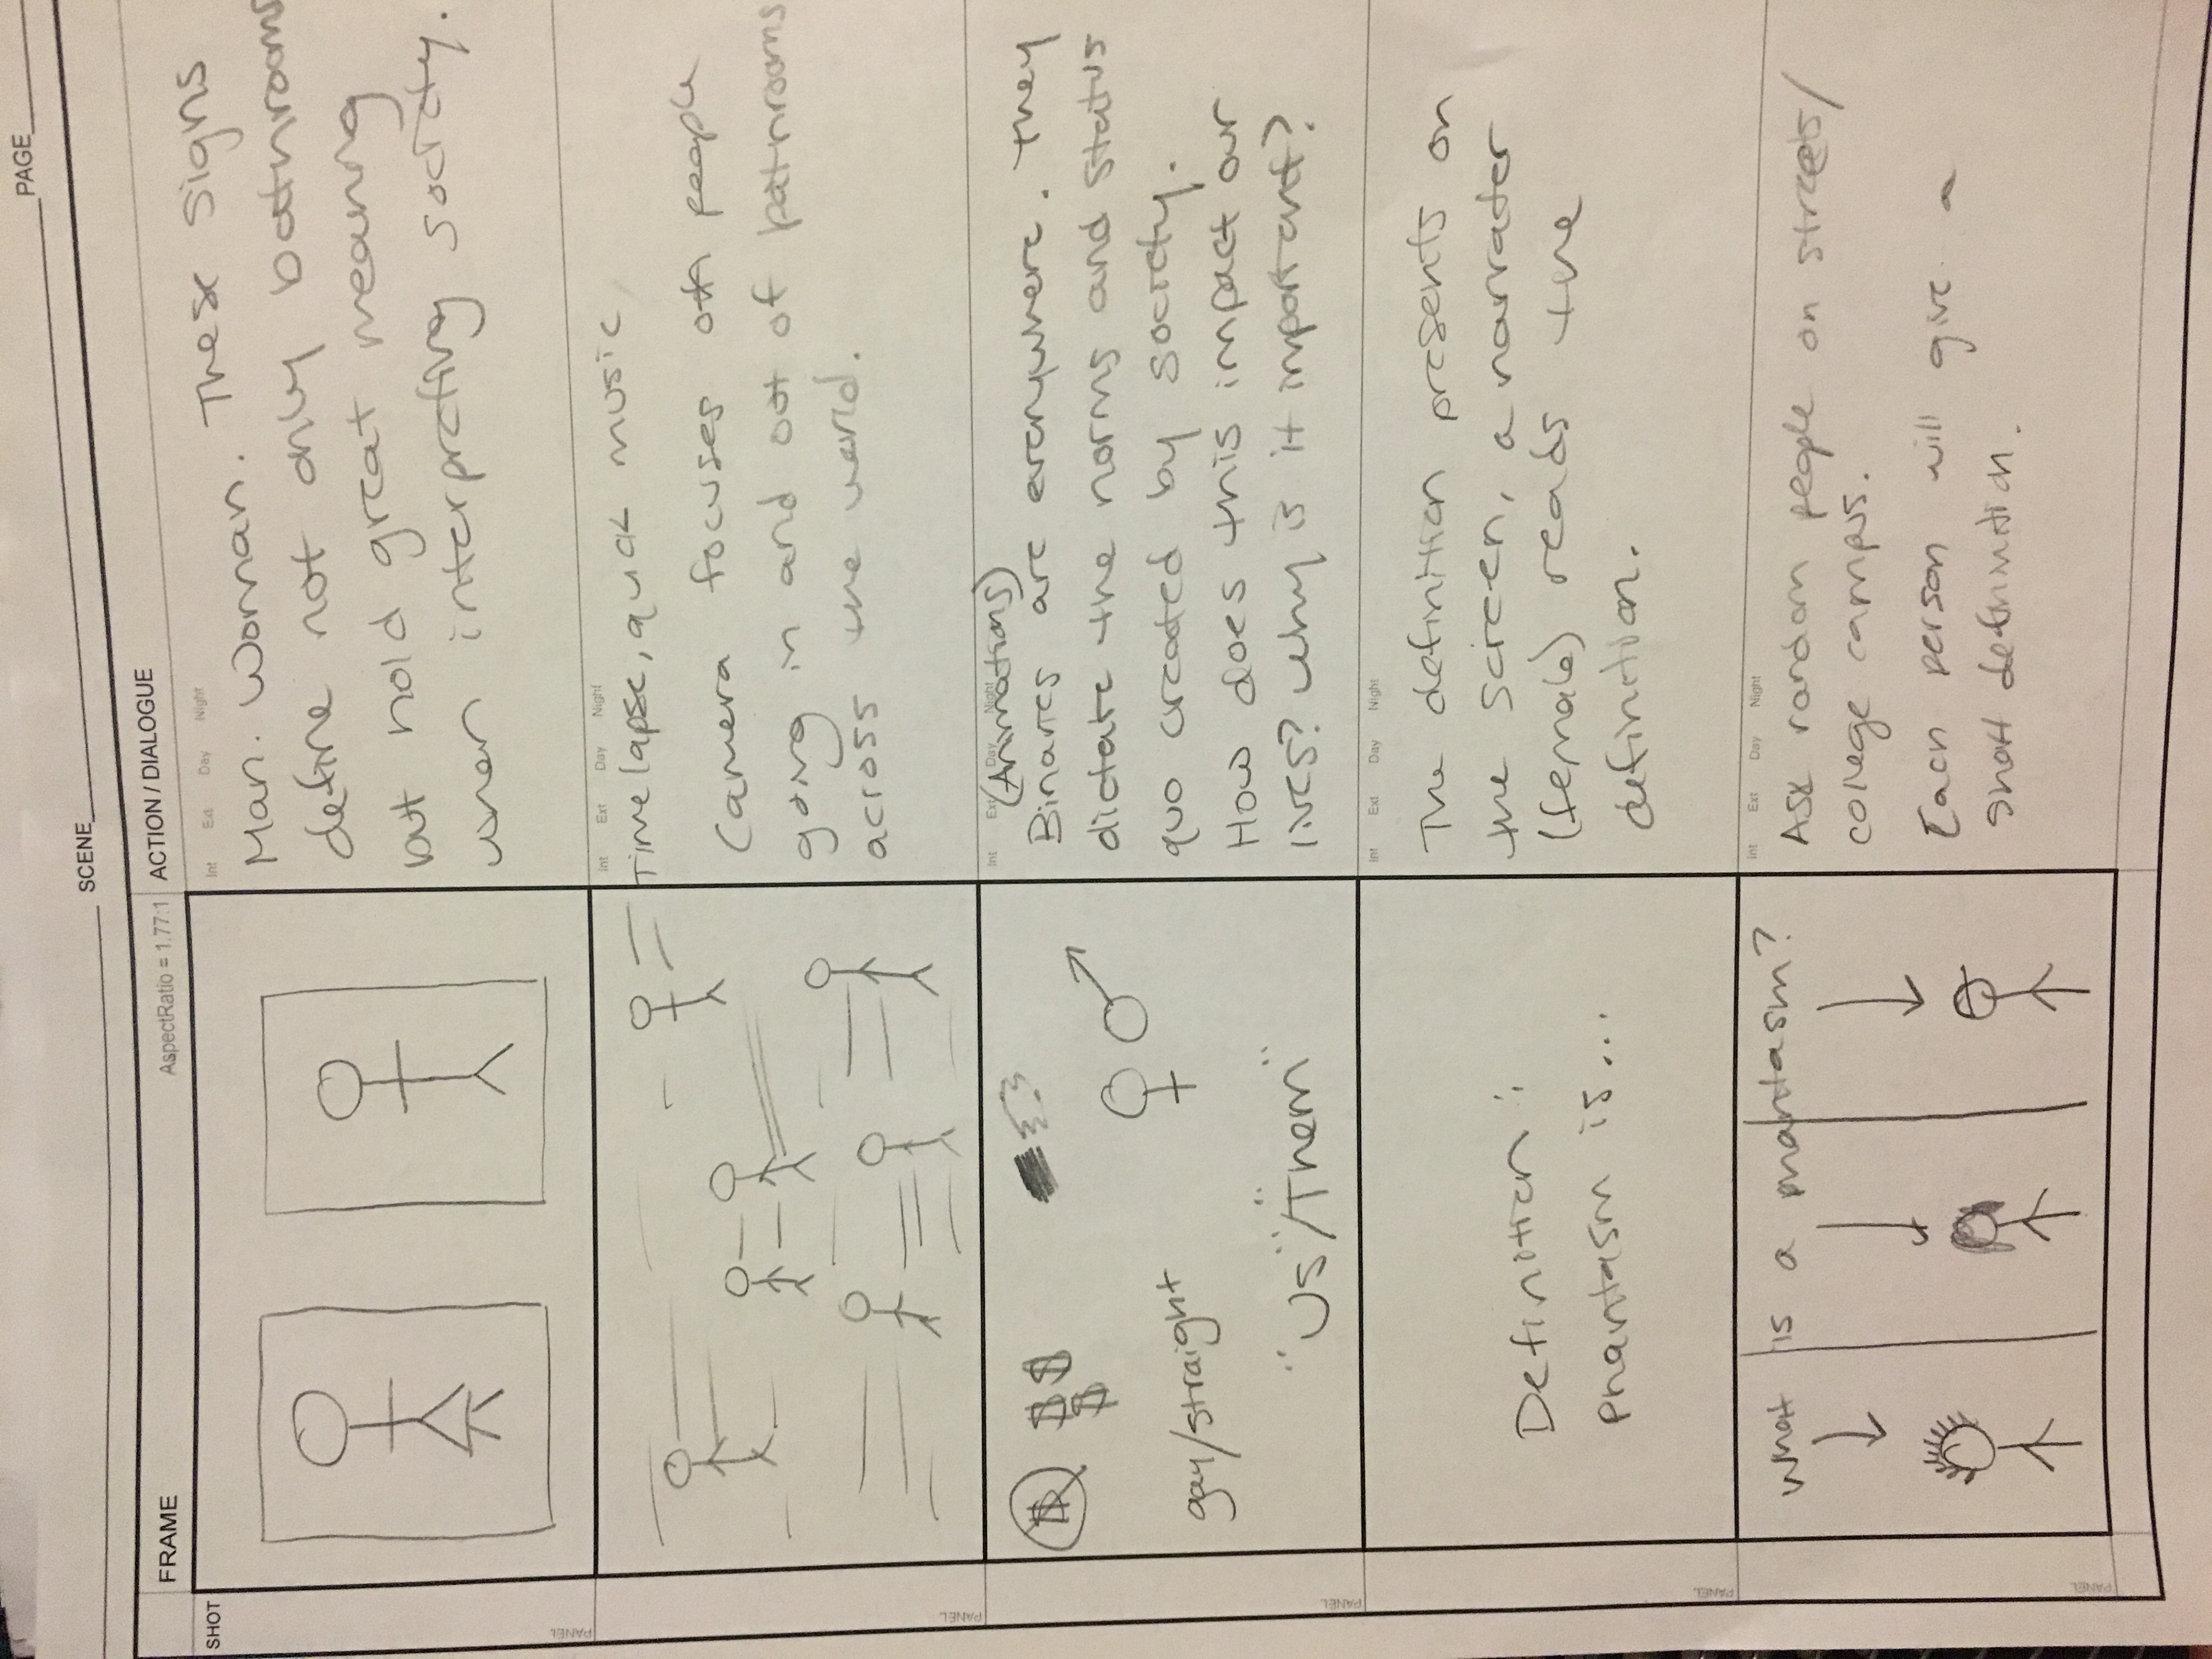 PAGE
SCENE
FRAME AspectRatio = 1.77:1 ACTION / DIALOGUE
SHOT
Int Ext Day Night
Man. Woman. These signs
define not only bathrooms
but hold great meaning
when interpreting society.
PANEL
Int Ext Day Night
Timelapse, quick music
Camera focuses on people
going in and out of bathrooms
across the world.
PANEL
$ $ $
$
gay/straight
"Us"/"Them"
Int Ext Day Night
(Animations)
Binaries are everywhere. They
dictate the norms and status
quo created by society.
How does this impact our
lives? Why is it important?
PANEL
Definition:
phantasm is...
Int Ext Day Night
The definition presents on
the screen, a narrater
(female) reads the
definition.
PANEL
What is a phantasm?
Int Ext Day Night
Ask random people on streets/
college campus.
Each person will give a
short definintion.
PANEL